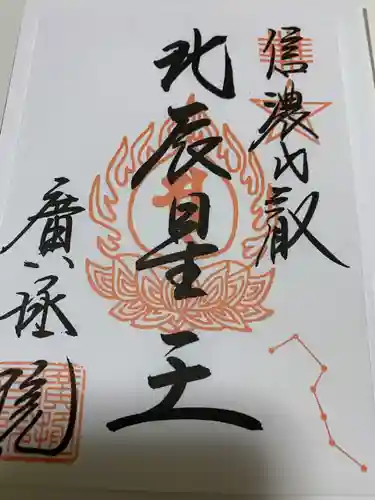 信濃比叡
北辰星王
廣拯院